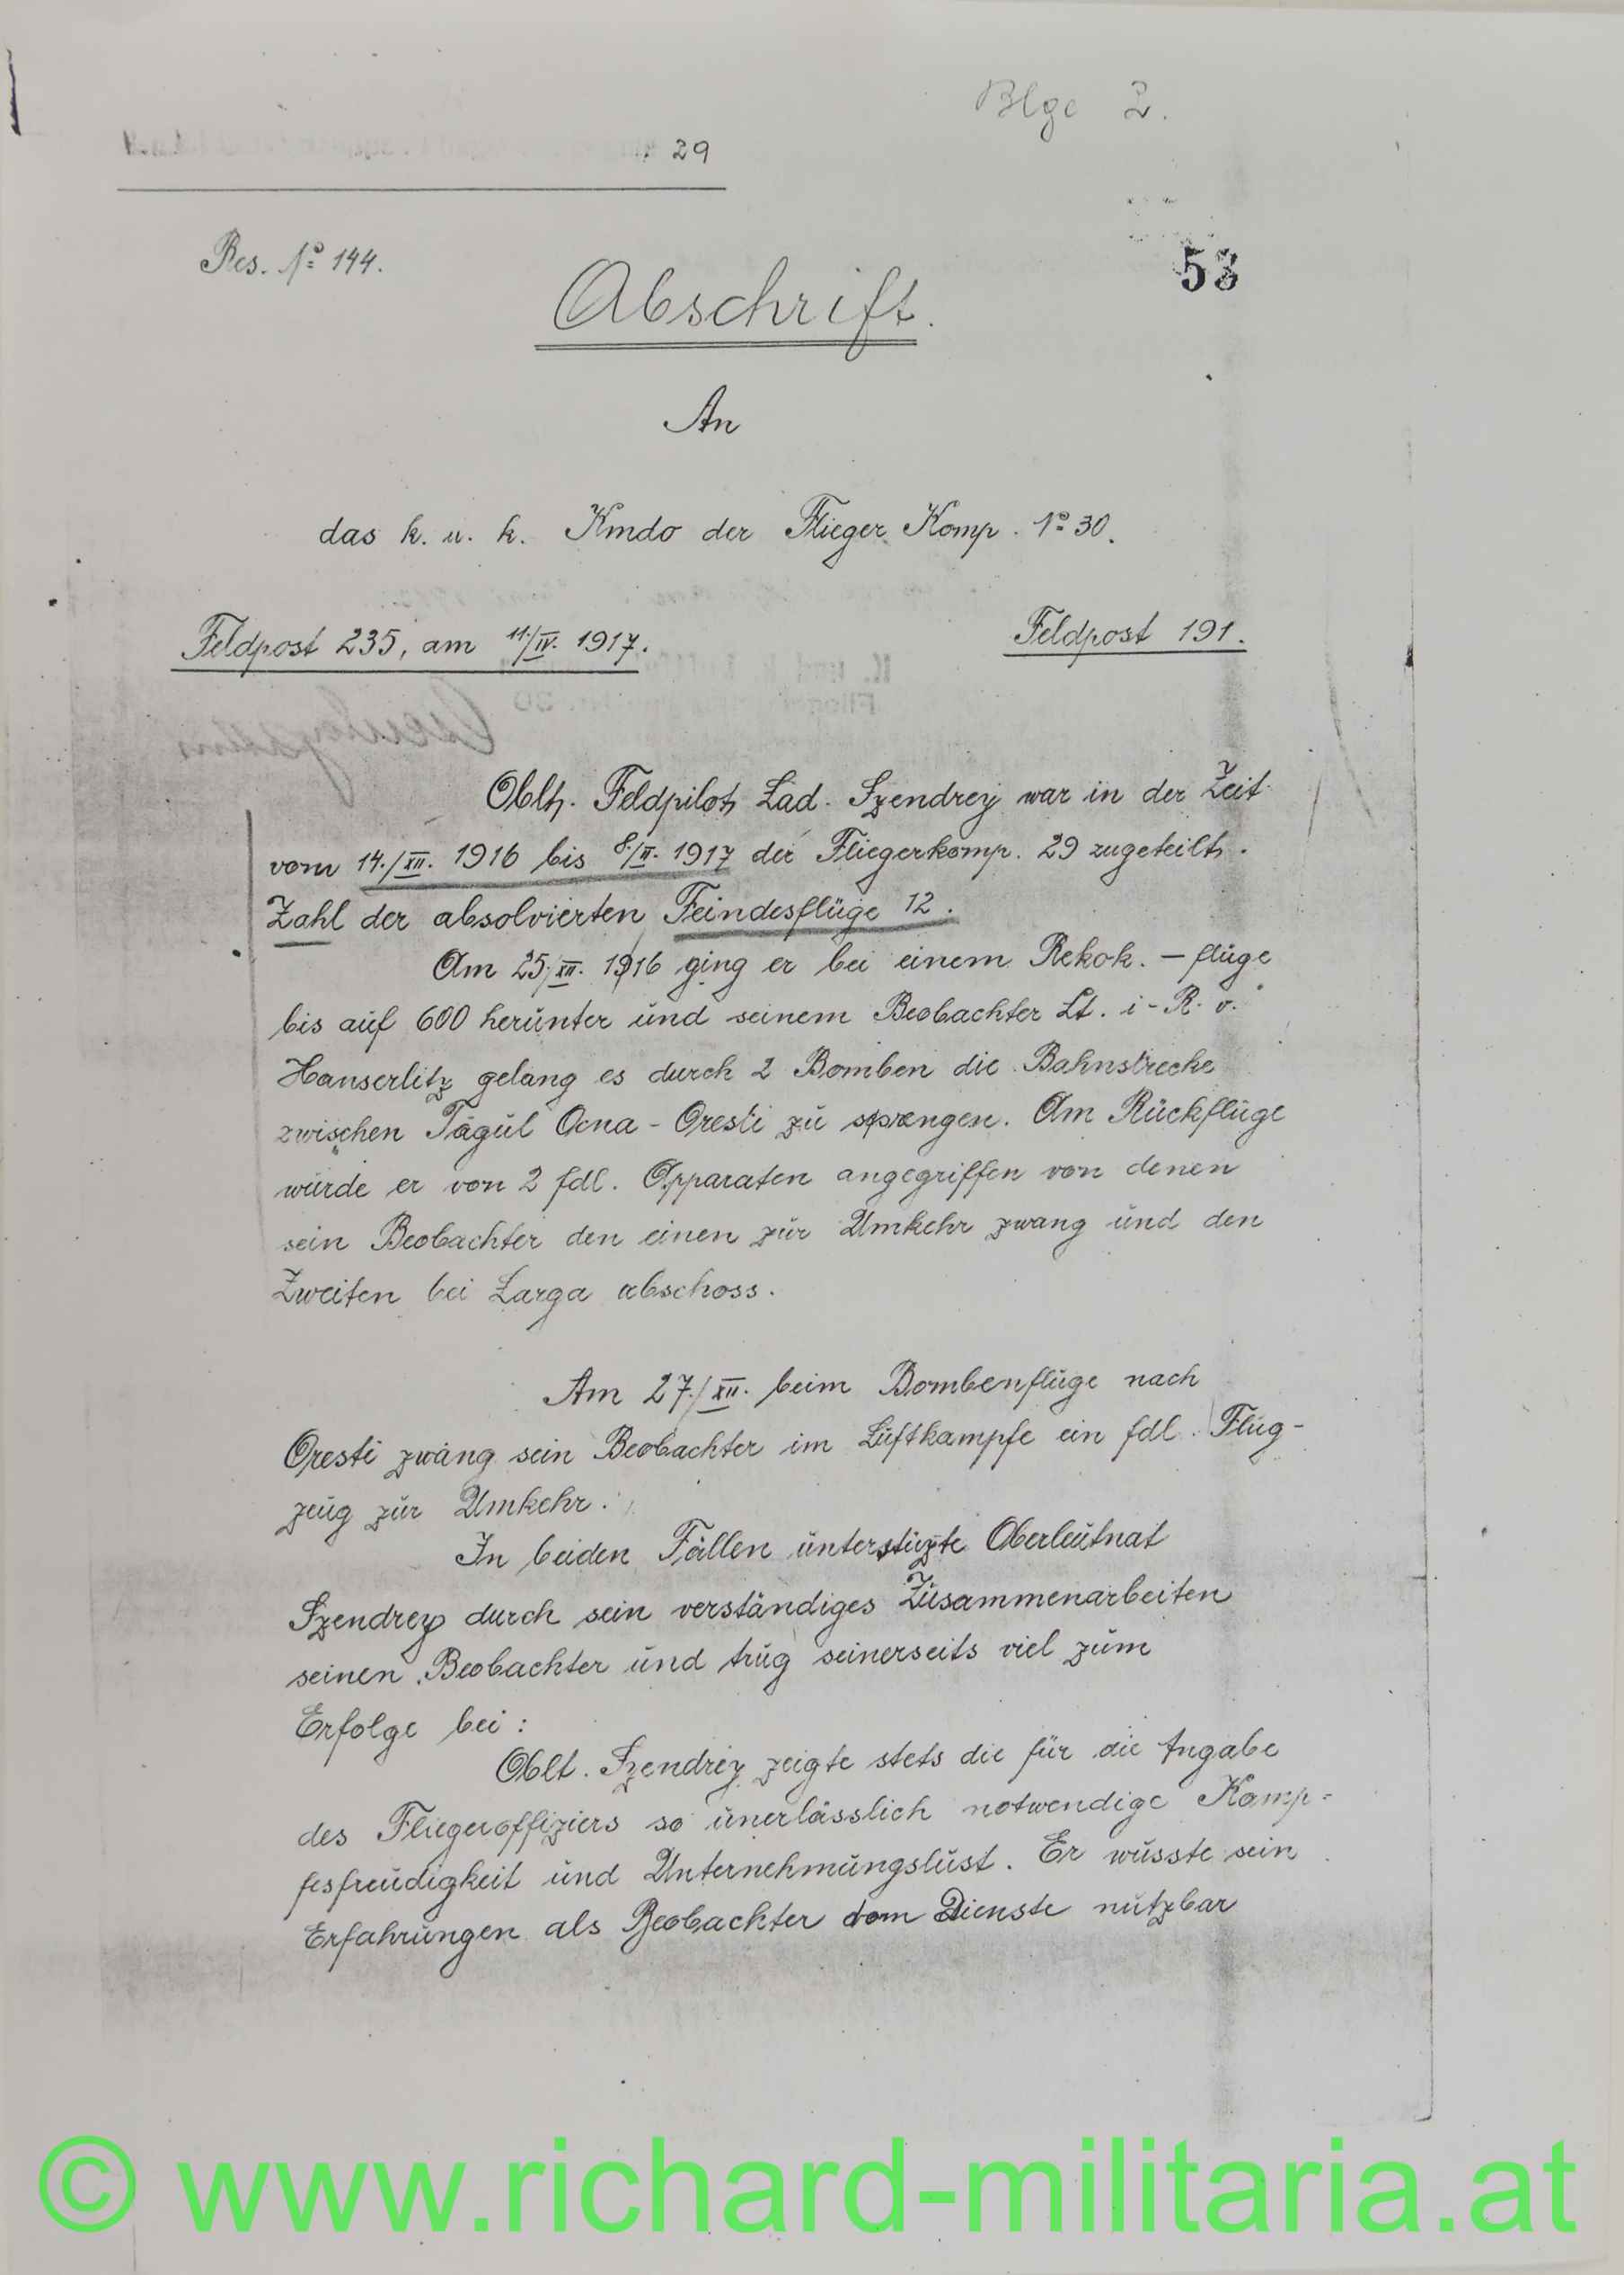 Blge 2.
29
Res. Nº 144.
53
Abschrift.
An
das k. u. k. Kmdo der Flieger Komp. Nº 30.
Feldpost 235, am 11./IV. 1917.
Feldpost 191.
Oblt. Feldpilot Lad. Szendrey war in der Zeit
vom 14./XII. 1916 bis 8./II. 1917 der Fliegerkomp. 29 zugeteilt.
Zahl der absolvierten Feindesflüge 12.
Am 25./XII. 1916 ging er bei einem Rekok. - fluge
bis auf 600 herunter und seinem Beobachter Lt. i-R. v.
Hauserlitz gelang es durch 2 Bomben die Bahnstrecke
zwischen Tágul Ocna - Oresti zu sprengen. Am Rückfluge
wurde er von 2 fdl. Apparaten angegriffen von denen
sein Beobachter den einen zur Umkehr zwang und den
Zweiten bei Larga abschoss.
Am 27./XII. beim Bombenfluge nach
Oresti zwang sein Beobachter im Luftkampfe ein fdl. Flug-
zeug zur Umkehr.
In beiden Fällen unterstüzte Oberleutnat
Szendrey durch sein verständiges Zusammenarbeiten
seinen Beobachter und trug seinerseits viel zum
Erfolge bei:
Oblt. Szendrey zeigte stets die für die Angabe
des Fliegeroffiziers so unerlässlich notwendige Kamp-
fesfreudigkeit und Unternehmungslust. Er wusste sein
Erfahrungen als Beobachter dem Dienste nutzbar
© www.richard-militaria.at